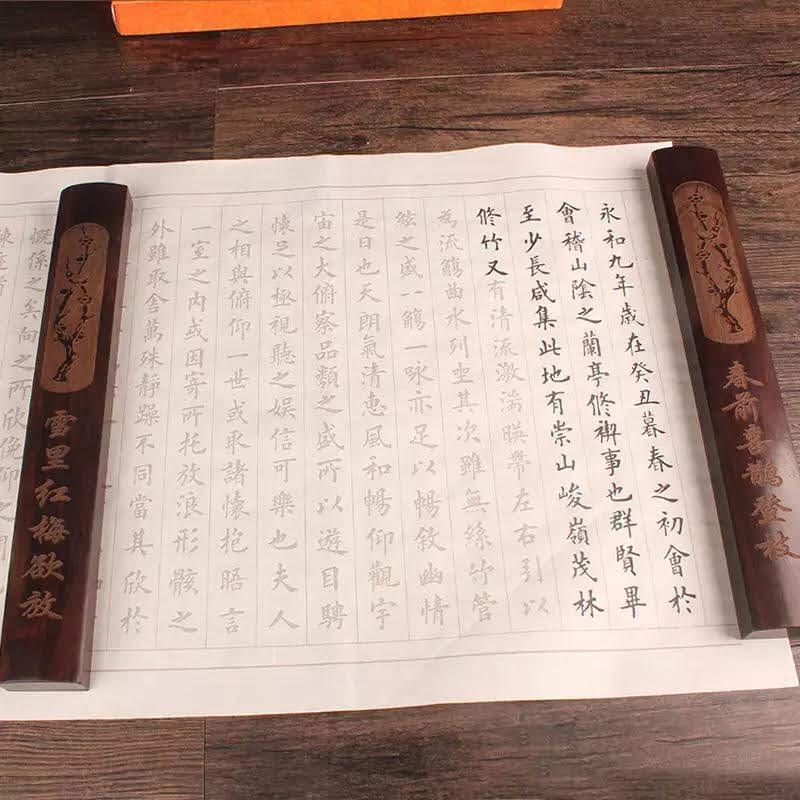 春前喜鵲登枝
永和九年歲在癸丑暮春之初會於
會稽山陰之蘭亭修禊事也群賢畢
至少長咸集此地有崇山峻嶺茂林
修竹又有清流激湍暎帶左右引以
為流觴曲水列坐其次雖無絲竹管
絃之盛一觴一咏亦足以暢敘幽情
是日也天朗氣清惠風和暢仰觀宇
宙之大俯察品類之盛所以遊目騁
懷足以極視聽之娛信可樂也夫人
之相與俯仰一世或取諸懷抱晤言
一室之內或因寄所托放浪形骸之
外雖取舍萬殊靜躁不同當其欣於
雪里红梅欲放
慨係之矣向之所欣俛仰之